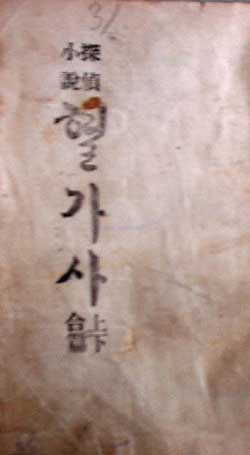 31
探偵
小說
혈가사
上下
合